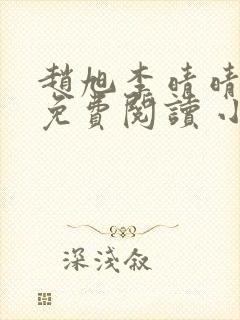 趙旭李晴晴
免費閱讀小
深淺敘